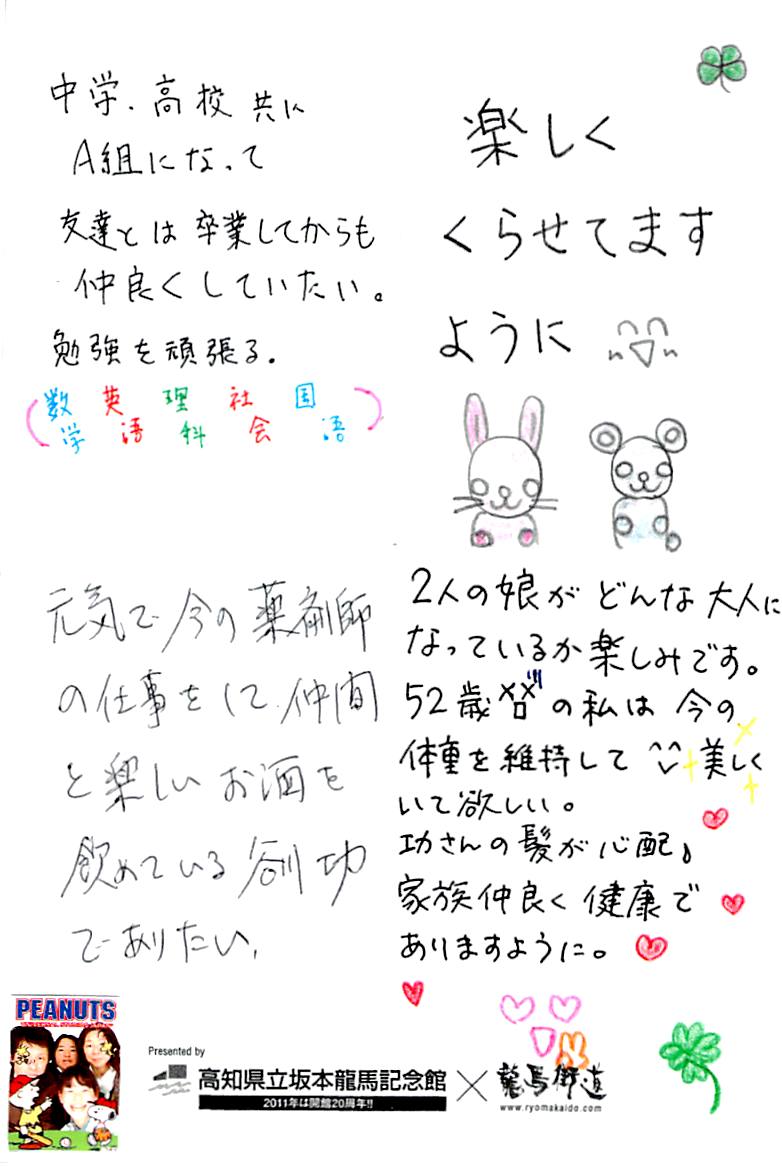 中学、高校共に
A組になって
友達とは卒業してからも
仲良くしていたい。
勉強を頑張る。
(数学 英語 理科 社会 国語)
楽しく
くらせてます
ように
元気で今の薬剤師
の仕事をして、仲間
と楽しいお酒を
飲めている 功
でありたい。
2人の娘がどんな大人に
なっているか楽しみです。
52歳の私は今の
体重を維持して美しく
いて欲しい。
功さんの髪が心配。
家族仲良く健康で
ありますように。
PEANUTS
Presented by
高知県立坂本龍馬記念館×龍馬街道
2011年は開館20周年!!
www.ryomakaido.com